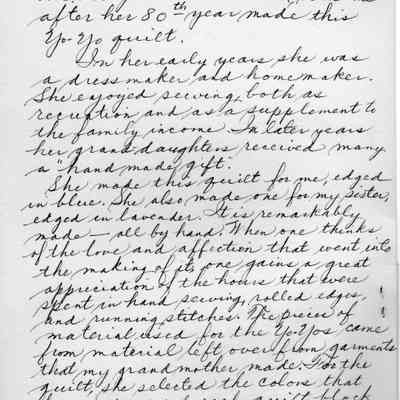 after her 80th year made this
Yo-Yo quilt.
In her early years she was
a dressmaker and homemaker.
She enjoyed sewing, both as
recreation and as a supplement to
the family income. In later years
her granddaughters received many
a "hand made gift."
She made this quilt for me, edged
in blue. She also made one for my sister,
edged in lavender. It is remarkably
made — all by hand. When one thinks
of the love and affection that went into
the making of it, one gains a great
appreciation of the hours that were
spent in hand sewing, rolled edges,
and running stitches. The pieces of
material used for the Yo-Yos came
from material left over from garments
that my grandmother made. For the
quilt, she selected the colors that
quilt block